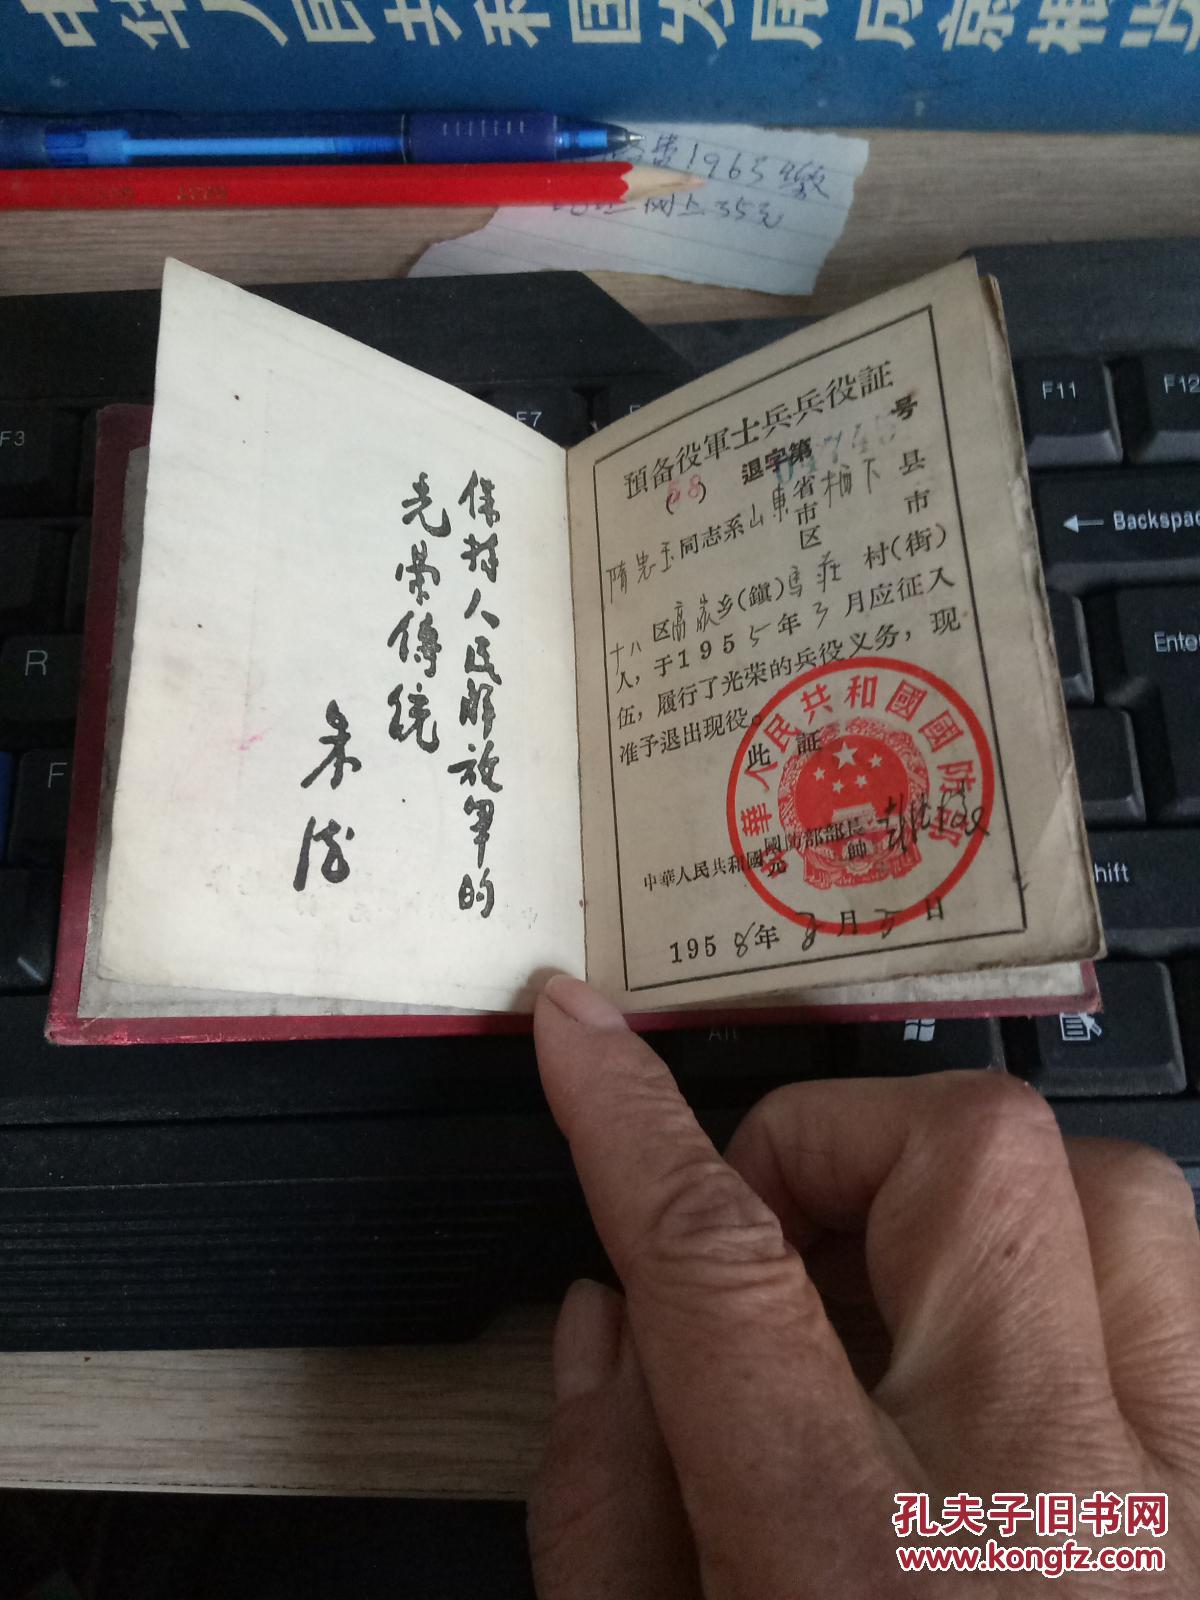 中华人民共和国发展成就
1963
网上35元
F3
F7
F11
F12
Backspac
Ente
R
F
hift
Alt
保持人民解放軍的
光荣傳統
朱德
預备役軍士兵兵役証
(58) 退字第 号
隋忠玉同志系山東省市区栖下县市
十八区高家乡(鎮)马庄村(街)
人,于1955年3月应征入
伍,履行了光荣的兵役义务,现
准予退出现役。
此証
中華人民共和國國防部
中華人民共和國國防部部長
元帥 彭德怀
1958年3月5日
孔夫子旧书网
www.kongfz.com